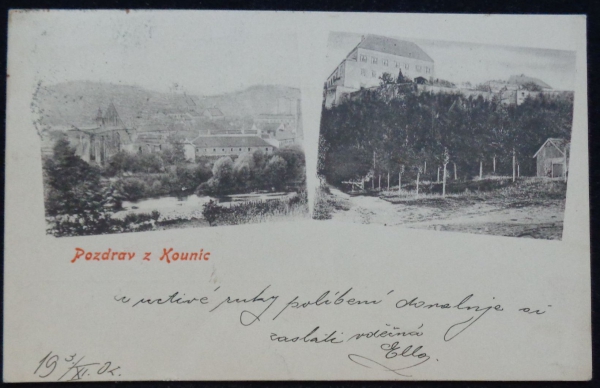 Pozdrav z Kounic
a uctivé ruky políbení dovoluje si
zaslati vděčná
Ella.
19 3/XI. 02.